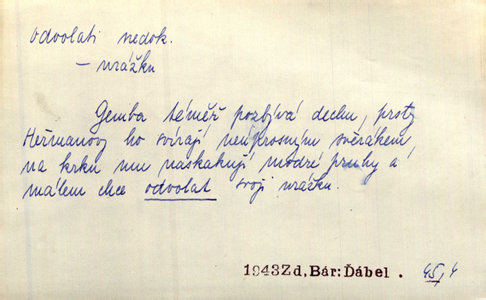 odvolati nedok.
– urážku
Gemba téměř pozbývá dechu, prsty
Heřmanovy ho svírají neúprosným svěrákem,
na krku mu naskakují modré pruhy a
málem chce odvolat svoji urážku.
1943Zd,Bár:Ďábel . 45,4